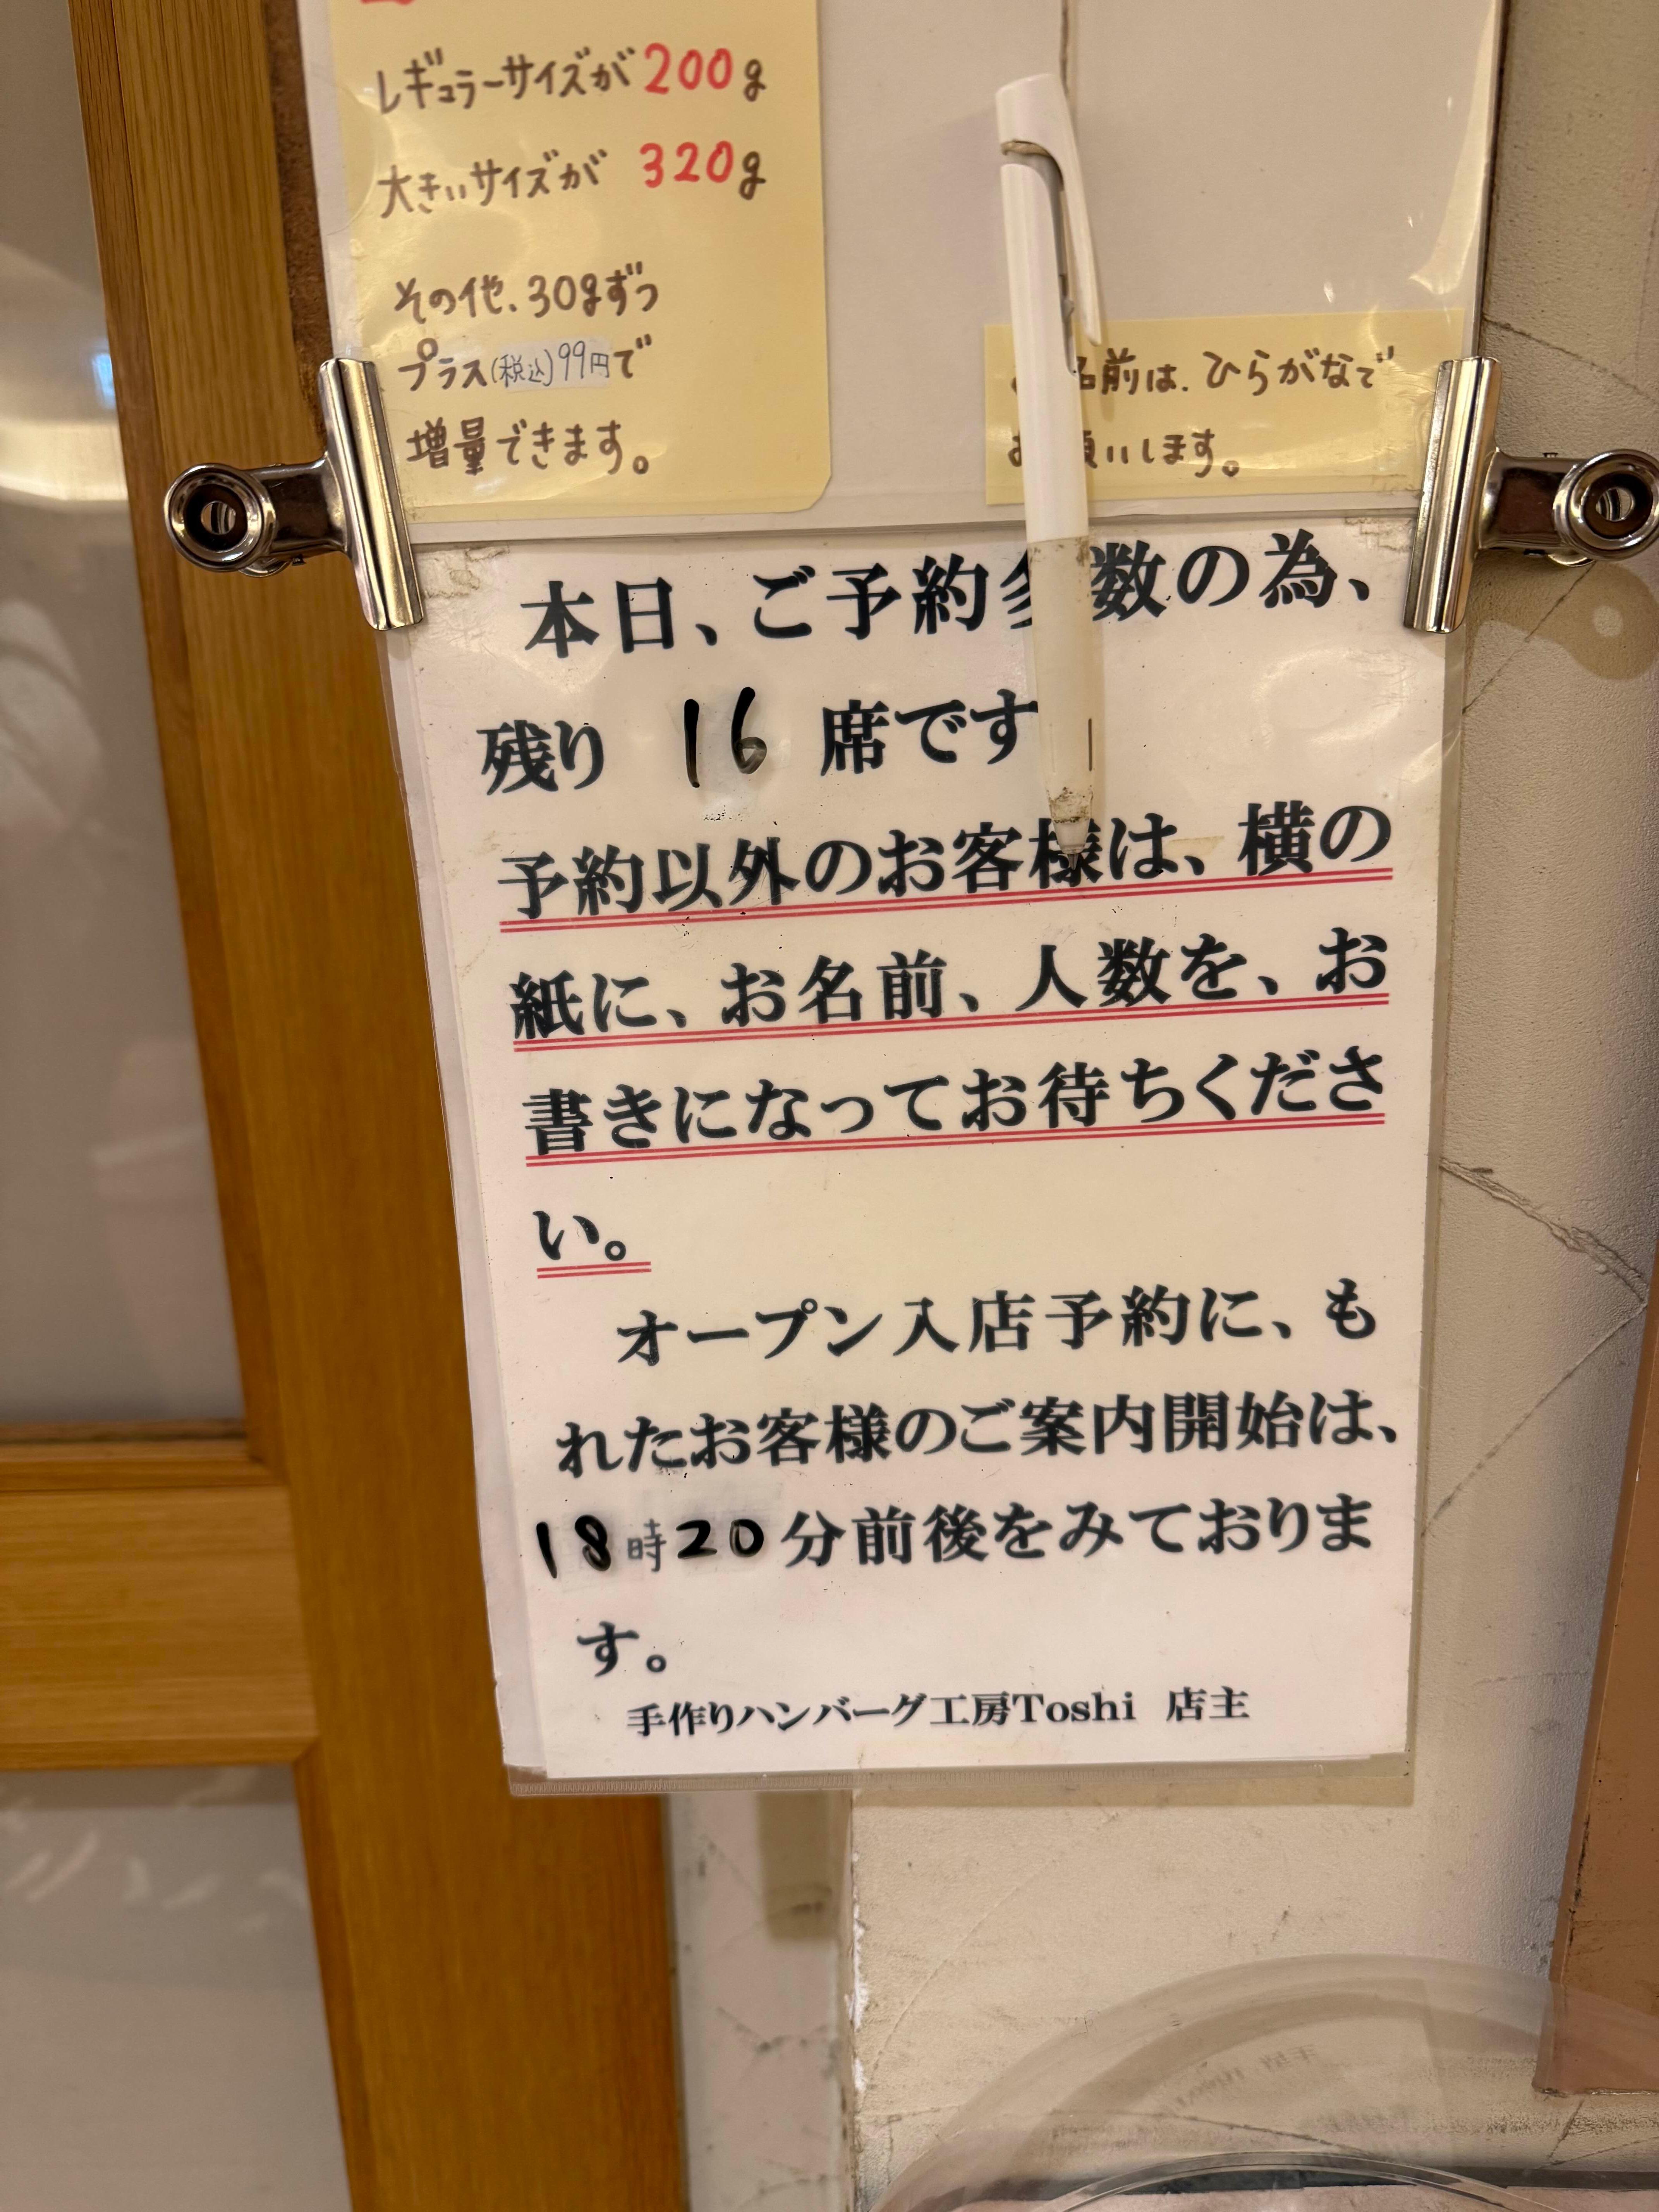 レギュラーサイズが200g
大きいサイズが 320g
その他、30gずつ
プラス(税込)99円で
増量できます。
名前は、ひらがなで
願いします。
本日、ご予約多数の為、
残り 16 席です
予約以外のお客様は、横の
紙に、お名前、人数を、お
書きになってお待ちくださ
い。
オープン入店予約に、も
れたお客様のご案内開始は、
18時20分前後をみておりま
す。
手作りハンバーグ工房Toshi 店主